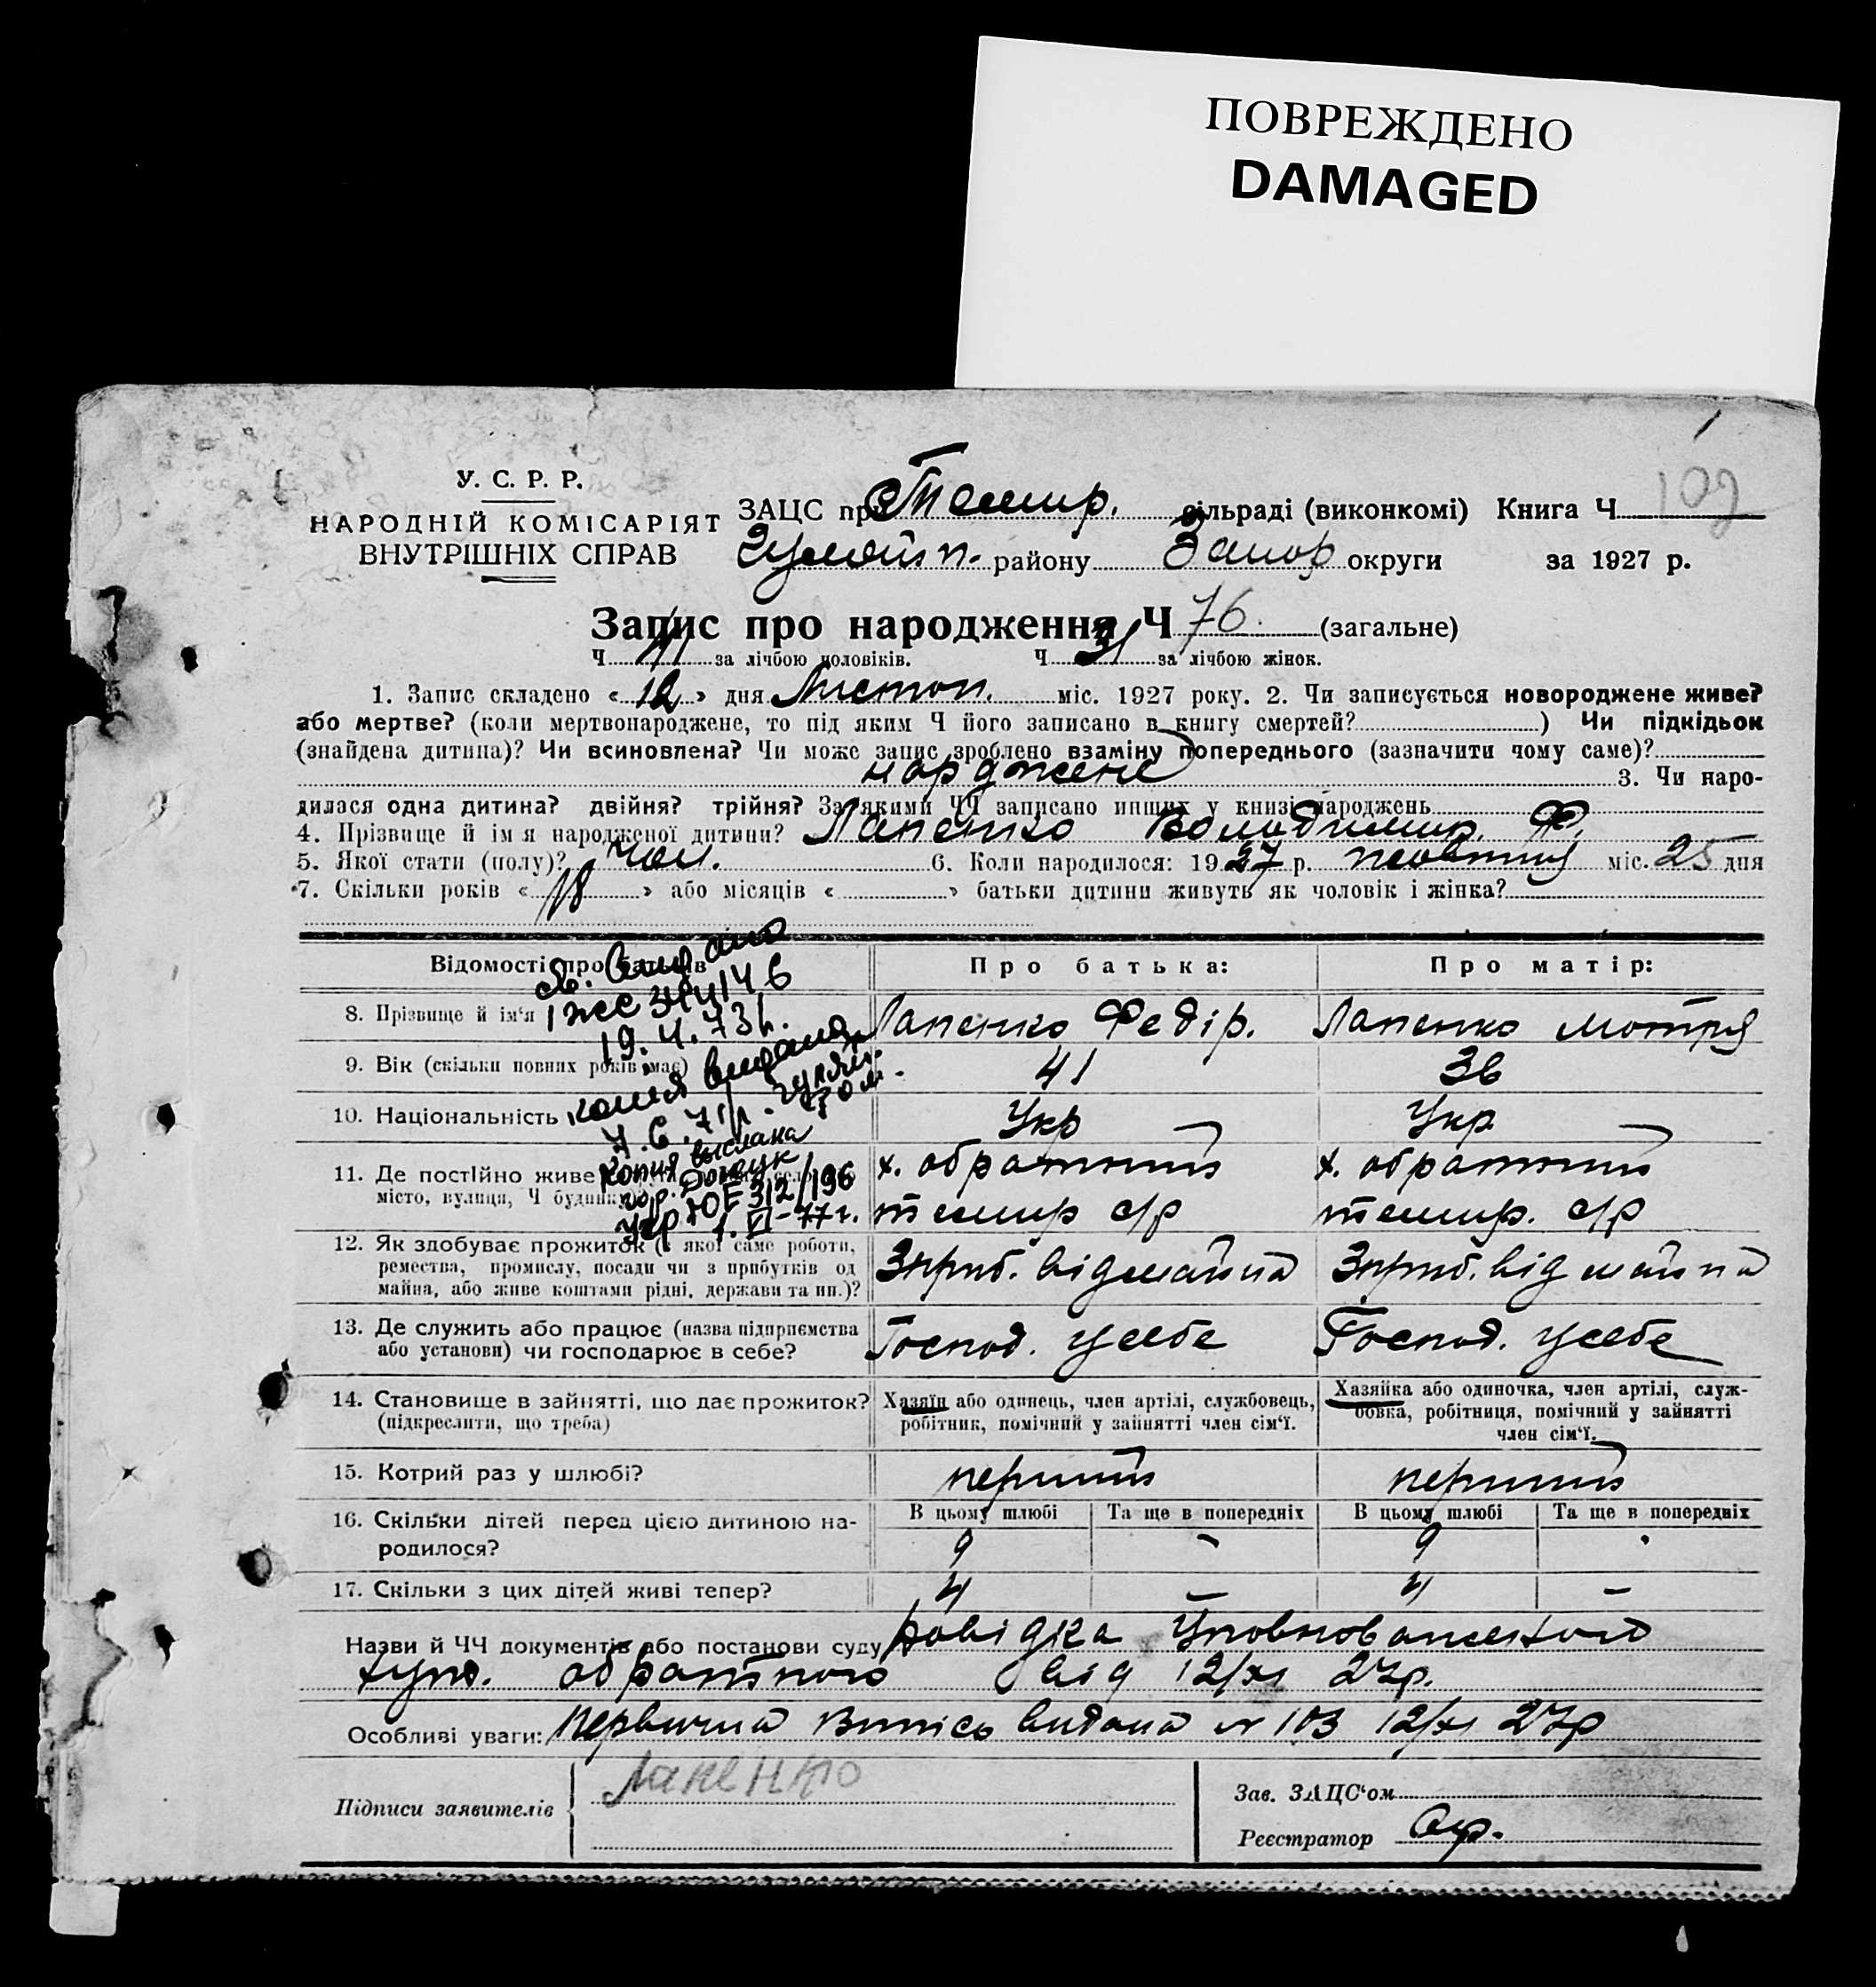 ПОВРЕЖДЕНО
DAMAGED
109
У. С. Р. Р.
НАРОДНІЙ КОМІСАРІЯТ
ВНУТРІШНІХ СПРАВ
ЗАЦС при Темир. сільраді (виконкомі) Книга Ч
Гуляйп. району Запор округи за 1927 р.
Запис про народження Ч 76. (загальне)
Ч за лічбою чоловіків. Ч 31 за лічбою жінок.
1. Запис складено « 12 » дня Листоп. міс. 1927 року. 2. Чи записується новороджене живе?
або мертве? (коли мертвонароджене, то під яким Ч його записано в книгу смертей? ) Чи підкідьок
(знайдена дитина)? Чи всиновлена? Чи може запис зроблено взаміну попереднього (зазначити чому саме)?
нарджене 3. Чи наро-
дилася одна дитина? двійня? трійня? За якими ЧЧ записано инших у книзі народжень
4. Прізвище й ім я народженої дитини? Лапенко Володимир. Ф.
5. Якої стати (полу)? Чол. 6. Коли народилося: 1927 р. жовтня міс. 25 дня
7. Скільки років « 18 » або місяців « » батьки дитини живуть як чоловік і жінка?
Відомості про батьків Про батька: Про матір:
св. видано
19. 4. 73 г.
копія видана
7. 6. 71 р.
копия выслана
гор. Донецк
ЮЕ 312/196
1. VI-77 г.
8. Прізвище й ім'я Лапенко Федір. Лапенко Мотря
9. Вік (скільки повних років має) 41 36
10. Національність Укр Укр
11. Де постійно живе х. обратний х. обратний
місто, вулиця, Ч будинку темир с/р темир. с/р
12. Як здобуває прожиток (з якої саме роботи,
ремества, промислу, посади чи з прибутків од
майна, або живе коштами рідні, держави та ин.)? Зприб. від майна Зприб. від майна
13. Де служить або працює (назва підприємства
або установи) чи господарює в себе? Господ. усебе Господ. усебе
14. Становище в зайнятті, що дає прожиток?
(підкреслити, що треба)
Хазяїн або одинець, член артілі, службовець,
робітник, помічний у зайнятті член сім'ї.
Хазяйка або одиночка, член артілі, служ-
бовка, робітниця, помічний у зайнятті
член сім'ї.
15. Котрий раз у шлюбі? перший перший
16. Скільки дітей перед цією дитиною на-
родилося?
В цьому шлюбі Та ще в попередніх В цьому шлюбі Та ще в попередніх
9 - 9 -
17. Скільки з цих дітей живі тепер? 4 - 4 -
Назви й ЧЧ документів або постанови суду Довідка Уповноваженого
хут. обратного від 12/XI 27р.
Особливі уваги: Первична Випісь видана N 103 12/XI 27р
Підписи заявителів Лапенко
Зав. ЗАЦС'ом
Реєстратор